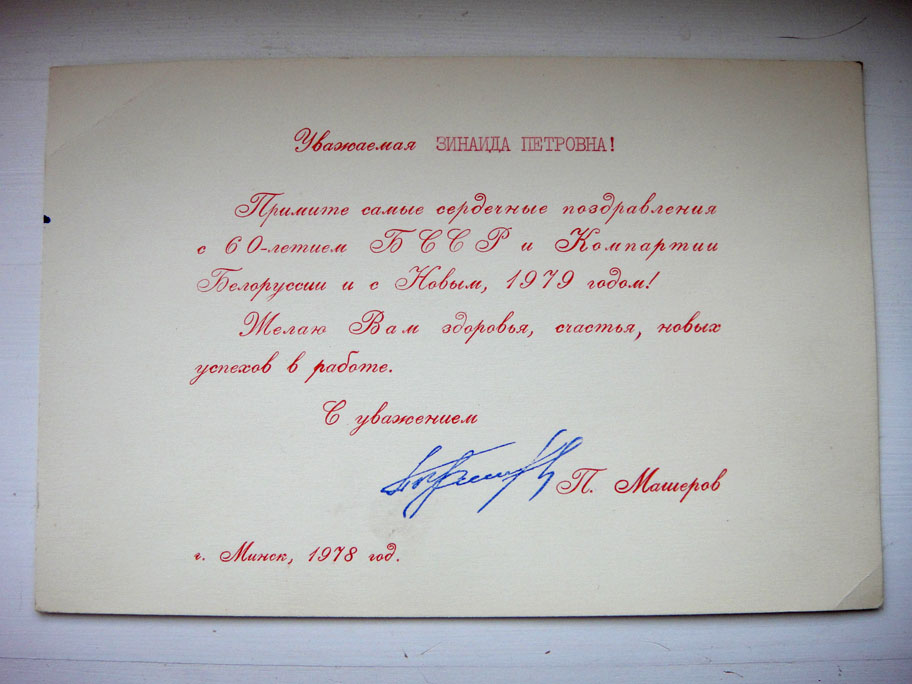 Уважаемая ЗИНАИДА ПЕТРОВНА!
Примите самые сердечные поздравления
с 60-летием БССР и Компартии
Белоруссии и с Новым, 1979 годом!
Желаю Вам здоровья, счастья, новых
успехов в работе.
С уважением
П. Машеров
г. Минск, 1978 год.